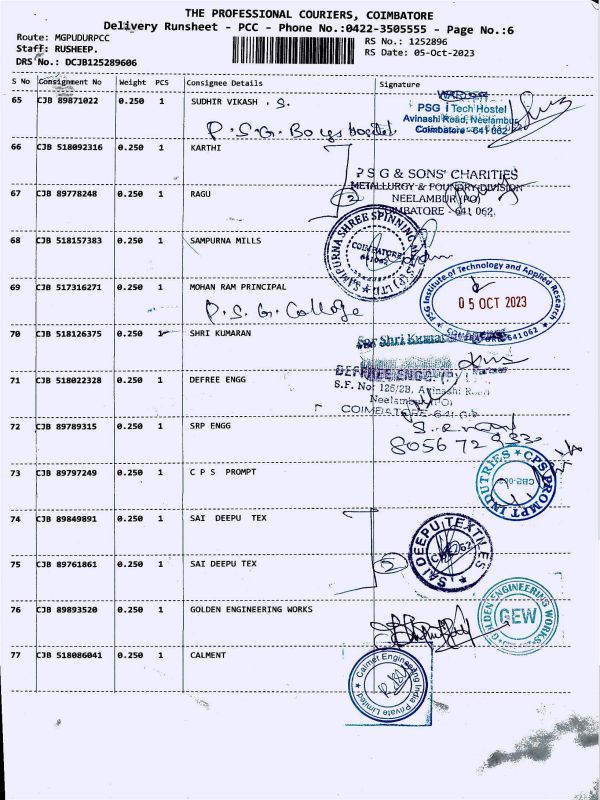 THE PROFESSIONAL COURIERS, COIMBATORE
Delivery Runsheet - PCC - Phone No.:0422-3505555 - Page No.:6
Route: MGPUDURPCC
RS No.: 1252896
Staff: RUSHEEP.
RS Date: 05-Oct-2023
DRS No.: DCJB125289606
S No Consignment No Weight PCS Consignee Details Signature
65 CJB 89871022 0.250 1 SUDHIR VIKASH . S.
WARDEN
PSG i Tech Hostel
Avinashi Road, Neelambur
Coimbatore - 641 062
P.S.G. Boys hostel
66 CJB 518092316 0.250 1 KARTHI
P S G & SONS' CHARITIES
METALLURGY & FOUNDRY DIVISION
NEELAMBUR (PO)
COIMBATORE - 641 062.
67 CJB 89778248 0.250 1 RAGU
2
68 CJB 518157383 0.250 1 SAMPURNA MILLS
SAMPURNA SHREE SPINNING MILLS (P) LTD
COIMBATORE
641062
69 CJB 517316271 0.250 1 MOHAN RAM PRINCIPAL
P.S.G. College
PSG Institute of Technology and Applied Research
05 OCT 2023
COIMBATORE 641062
70 CJB 518126375 0.250 1 SHRI KUMARAN
For Shri Kumaran
71 CJB 518022328 0.250 1 DEFREE ENGG
DEFREE ENGG
S.F. No: 125/2B, Avinashi Road
Neelambur (PO)
COIMBATORE-641
72 CJB 89789315 0.250 1 SRP ENGG
8056 72
73 CJB 89797249 0.250 1 C P S PROMPT
CPS PROMPT INDUTRIES
74 CJB 89849891 0.250 1 SAI DEEPU TEX
SAI DEEPU TEXTILES
75 CJB 89761861 0.250 1 SAI DEEPU TEX
2
76 CJB 89893520 0.250 1 GOLDEN ENGINEERING WORKS
GOLDEN ENGINEERING WORKS
GEW
77 CJB 518086041 0.250 1 CALMENT
Calmet Engineering India Private Limited